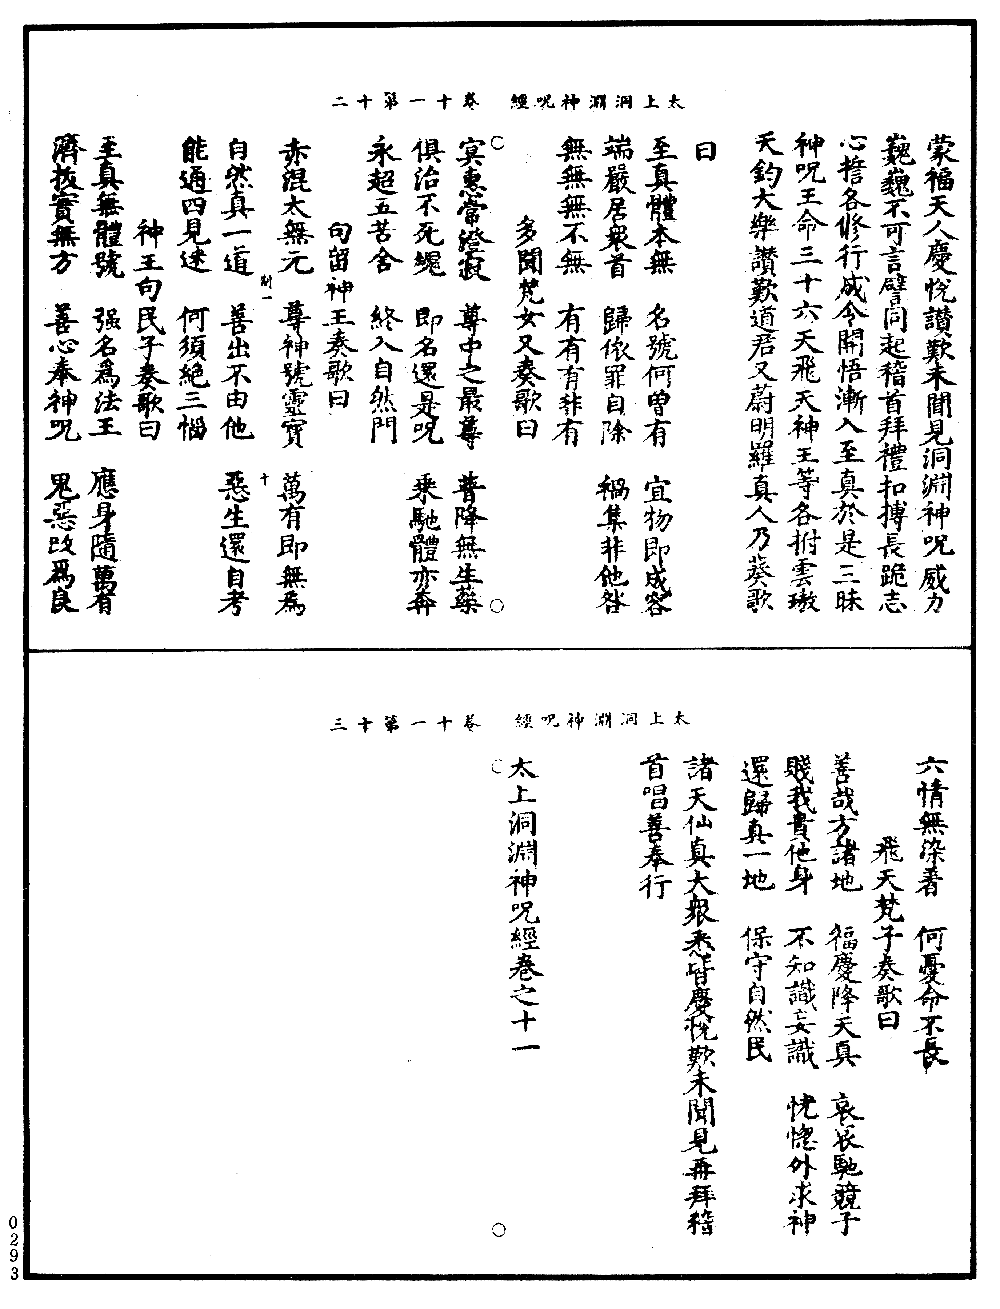 太上洞淵神呪經　卷十一第十二
蒙福天人慶悅讚歎未聞見洞淵神呪威力
巍巍不可言譬同起稽首拜禮扣搏長跪志
心擔各修行咸令開悟漸入至真於是三昧
神呪王命三十六天飛天神王等各拊雲璈
天鈞大樂讚歎道君又蔚明羅真人乃葵歌
曰
至真體本無　名號何曾有　宜物即成容
端嚴居衆首　歸依罪自除　禍集非他咎
無無無不無　有有有非有
多聞梵女又奏歌曰
冥惠當澄寂　尊中之最尊　普降無生藥
俱治不死䰟　即名還是呪　乘馳體亦奔
永超五苦舍　終入自然門
句留神王奏歌曰
赤混太無元　尊神號靈寶　萬有即無為
自然真一道　善出不由他　惡生還自考
能通四見迷　何須絕三惱
神王句民子奏歌曰
至真無體號　强名為法王　應身隨萬有
濟拔實無方　善心奉神呪　鬼惡改為良
太上洞淵神呪經　卷十一第十三
六情無染著　何憂命不長
飛天梵子奏歌曰
善哉方諸地　福慶降天真　哀哀馳競子
賤我貴他身　不知識妄識　恍惚外求神
還歸真一地　保守自然民
諸天仙真大衆悉皆慶悅歎未聞見再拜稽
首唱善奉行
太上洞淵神呪經卷之十一
0293